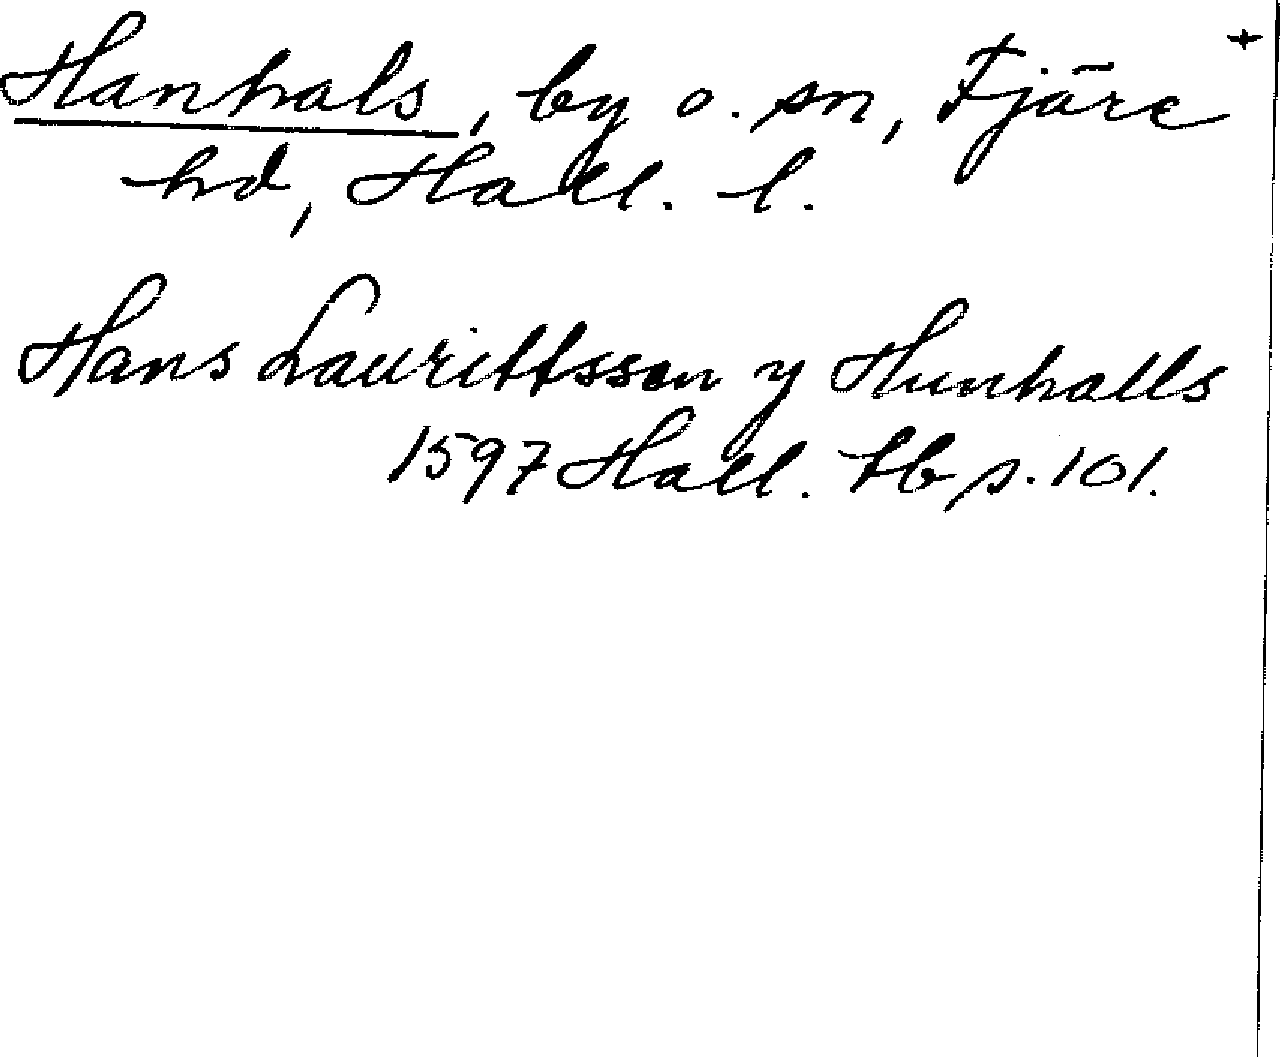 Hanhals, by o. sn, Fjäre +
hd, Hall. l.
Hans Laurittssen y Hunhalls
1597 Hall. tb s. 101.